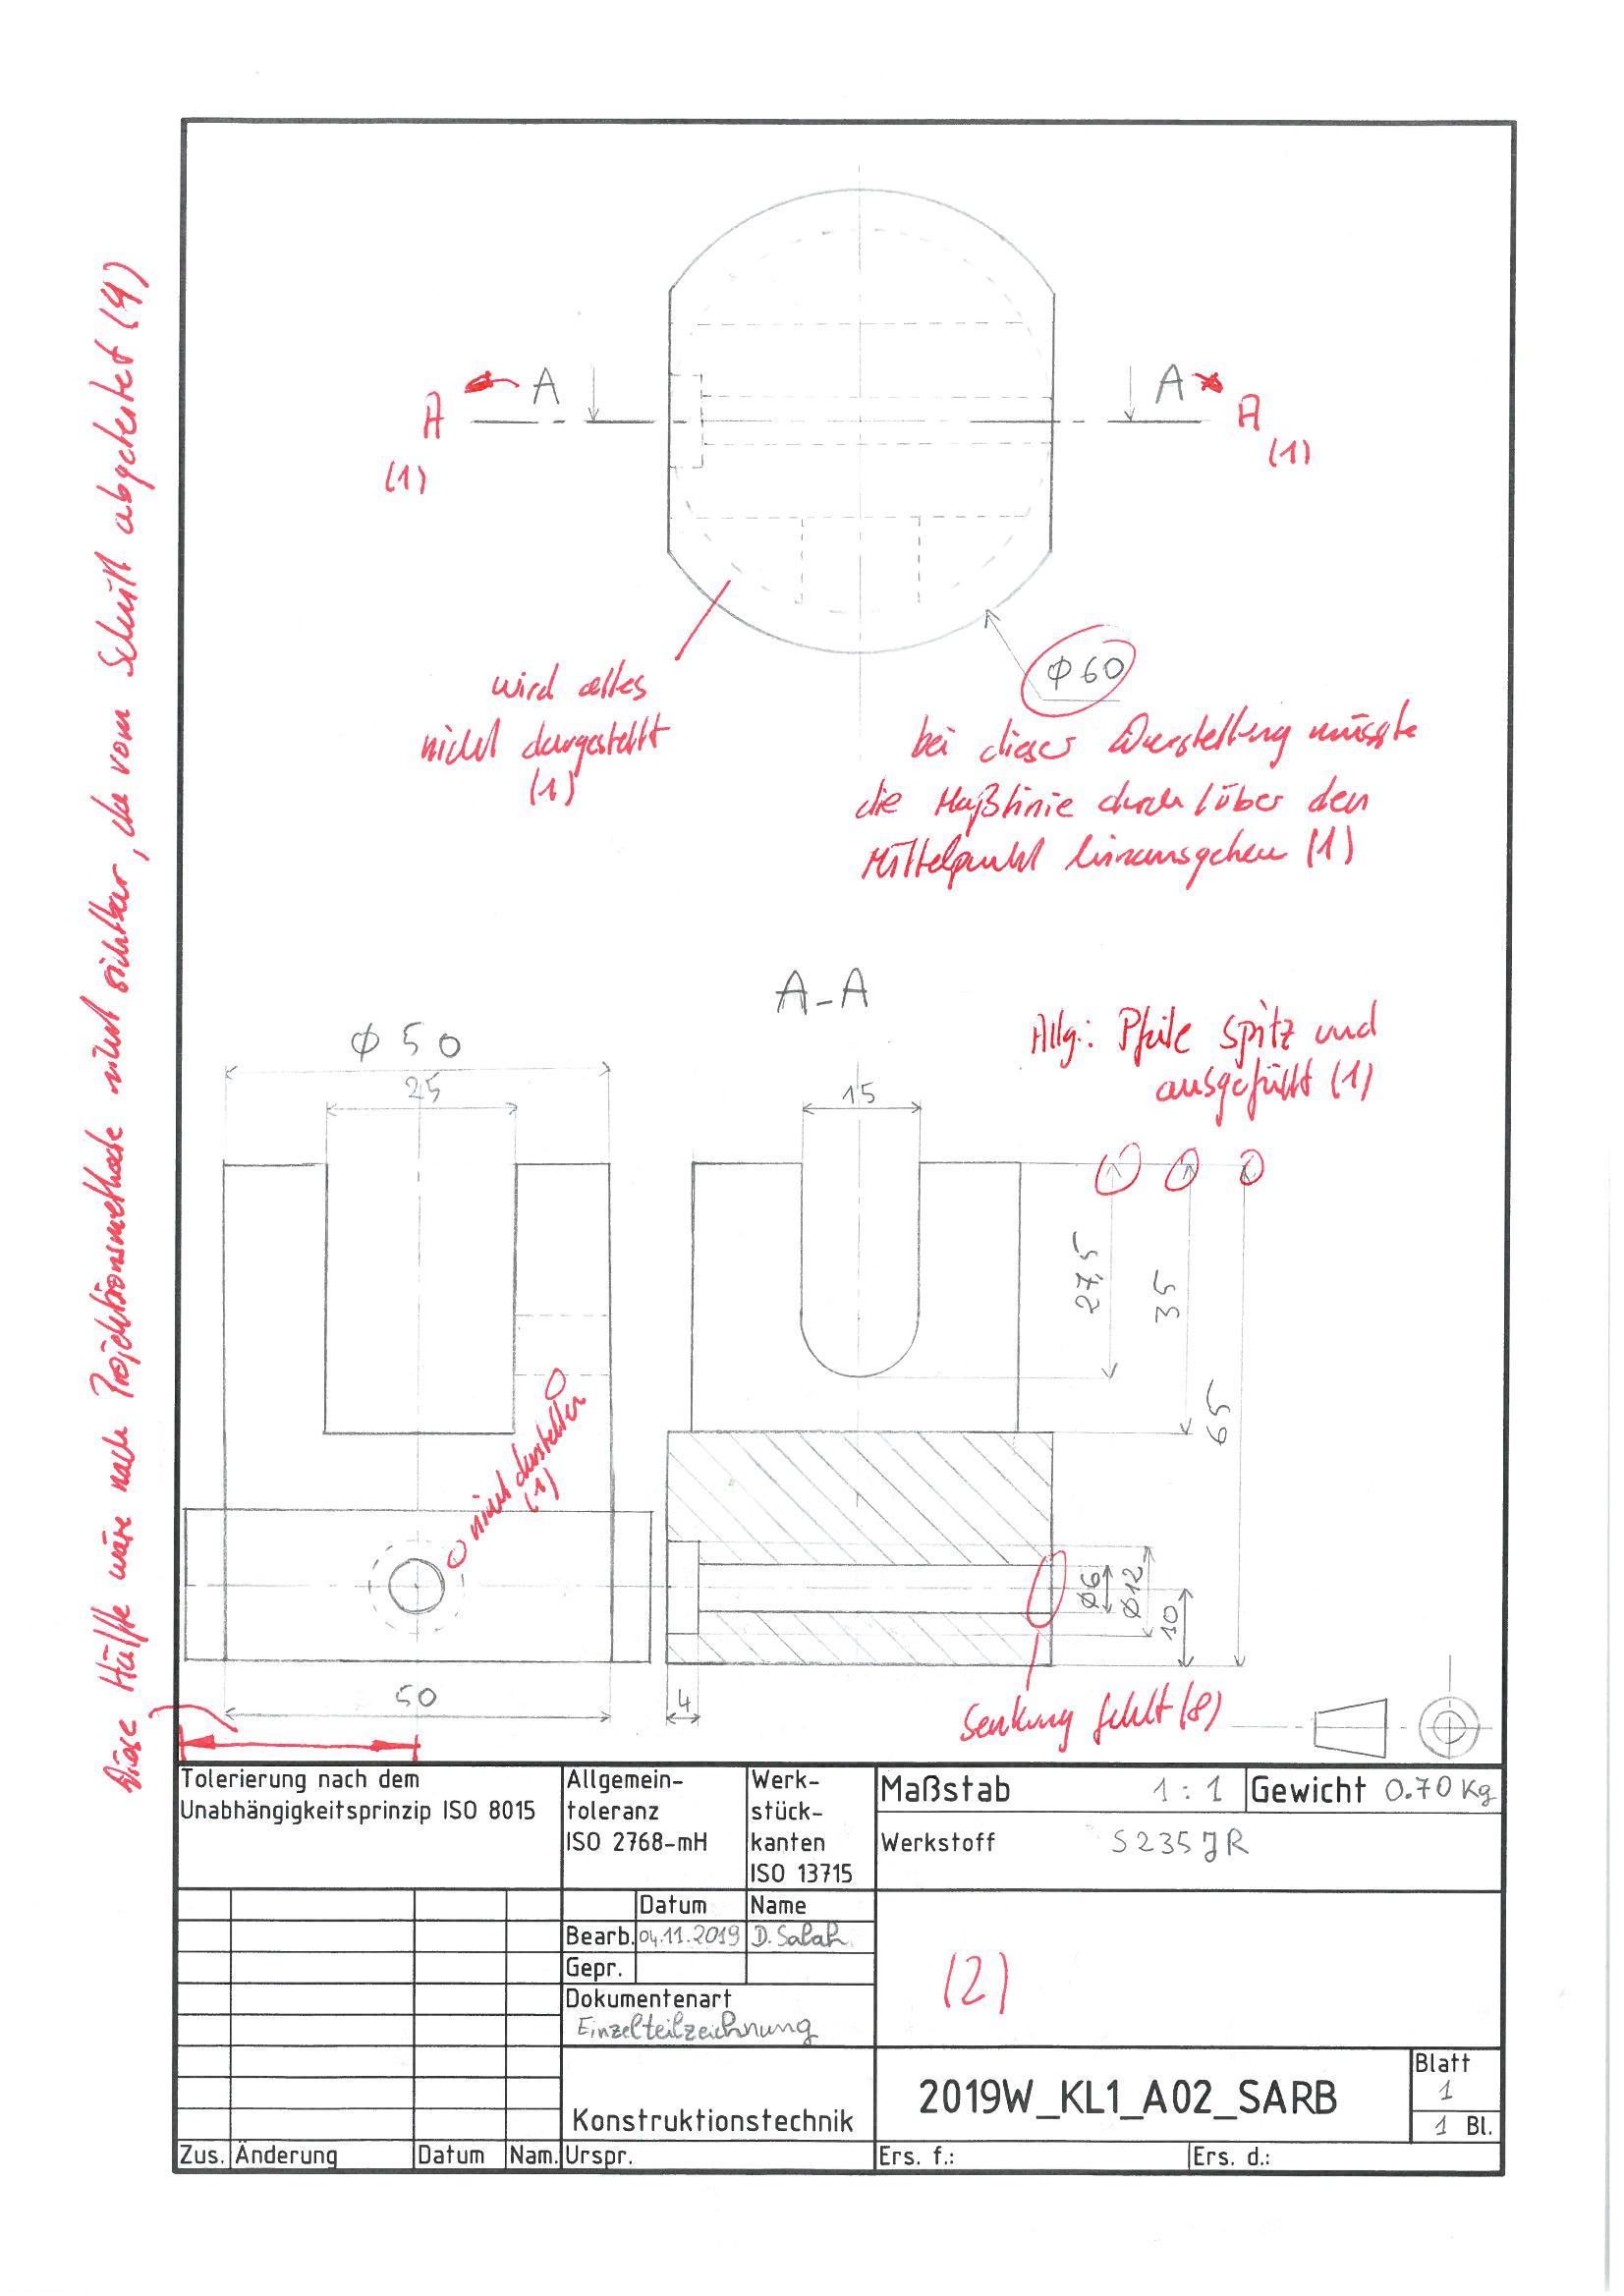 Diese Hälfte wäre nach Projektionsmethode nicht sichtbar, da vom Schnitt abgeleitet (4)
A
A
A
A
(1)
(1)
wird alles
nicht dargestellt
(1)
Φ60
bei dieser Darstellung müsste
die Maßlinie durch / über den
Mittelpunkt hinausgehen (1)
A-A
Allg.: Pfeile spitz und
ausgefüllt (1)
Φ 50
25
15
27,5
35
65
nicht darstellen
(1)
Φ6
Φ12
10
50
4
Senkung fehlt (8)
Tolerierung nach dem
Unabhängigkeitsprinzip ISO 8015
Allgemein-
toleranz
ISO 2768-mH
Werk-
stück-
kanten
ISO 13715
Maßstab 1:1
Gewicht 0.70 Kg
Werkstoff S235JR
Datum Name
Bearb. 04.11.2019 D. Salah
Gepr.
Dokumentenart
Einzelteilzeichnung
(2)
Konstruktionstechnik
2019W_KL1_A02_SARB
Blatt
1
1 Bl.
Zus. Änderung Datum Nam. Urspr. Ers. f.: Ers. d.: